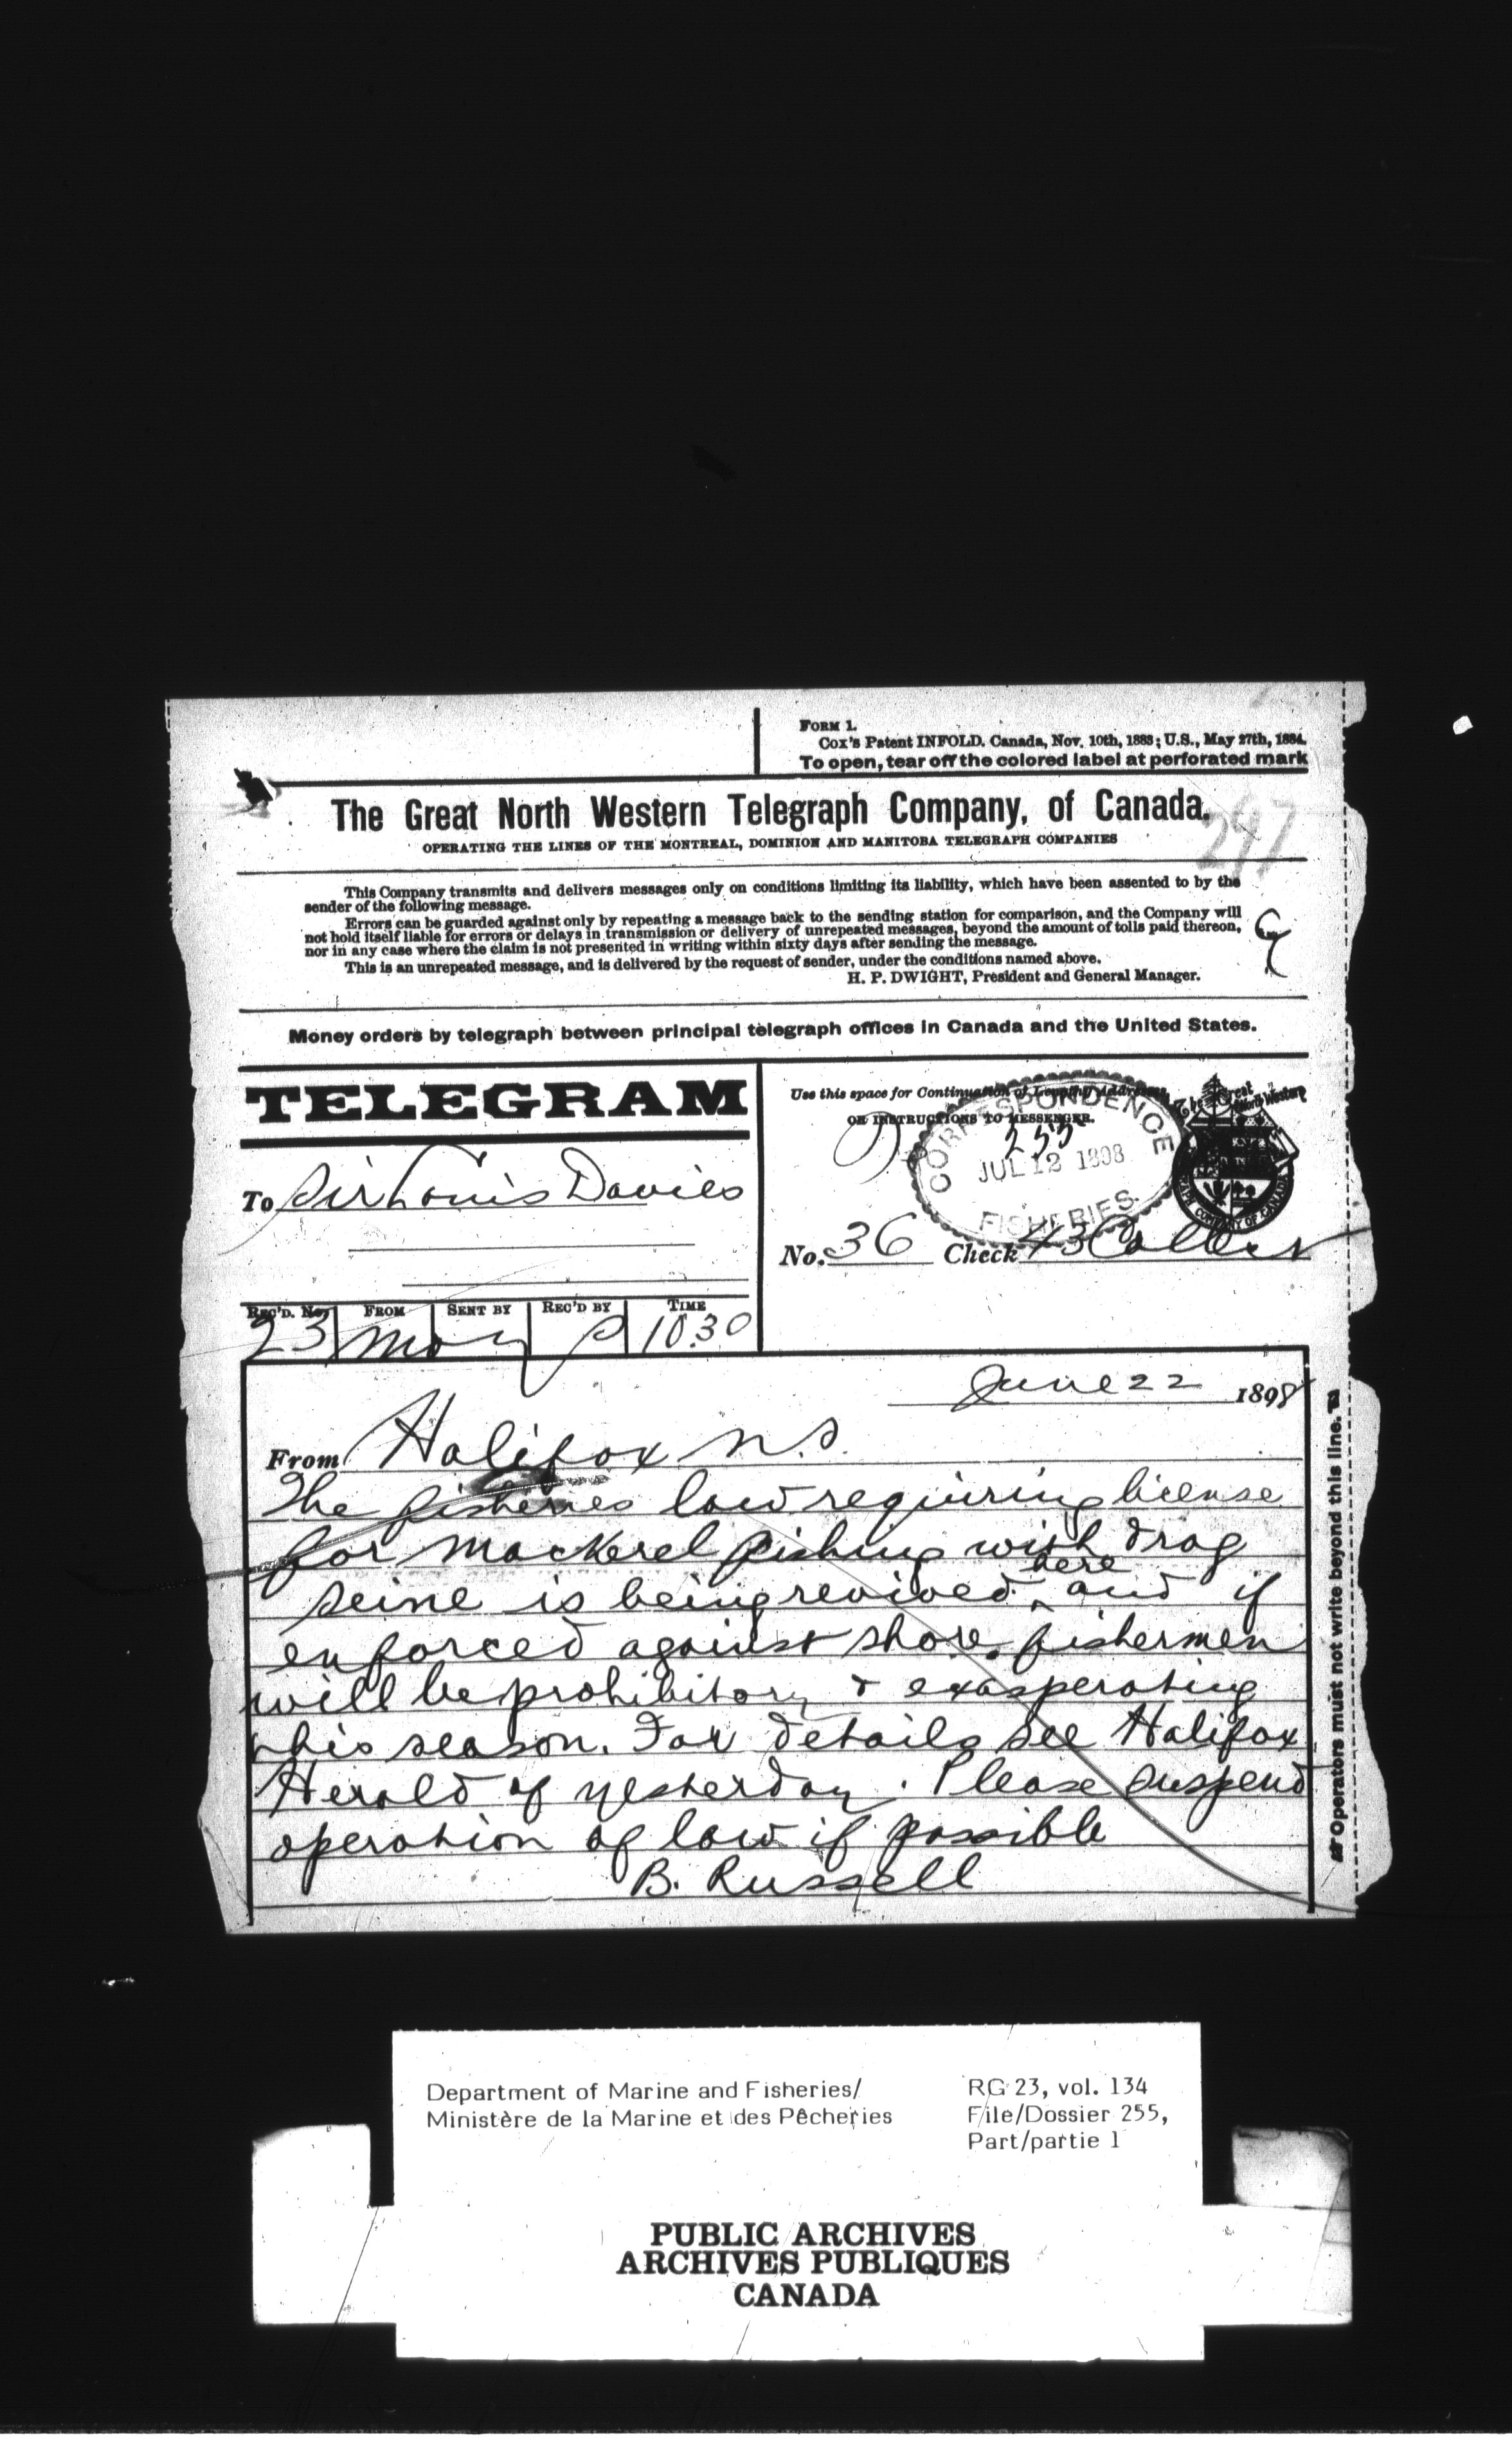 FORM 1.
Cox's Patent INFOLD. Canada, Nov. 10th, 1883; U.S., May 27th, 1884.
To open, tear off the colored label at perforated mark
The Great North Western Telegraph Company, of Canada.
247
OPERATING THE LINES OF THE MONTREAL, DOMINION AND MANITOBA TELEGRAPH COMPANIES
This Company transmits and delivers messages only on conditions limiting its liability, which have been assented to by the
sender of the following message.
Errors can be guarded against only by repeating a message back to the sending station for comparison, and the Company will
not hold itself liable for errors or delays in transmission or delivery of unrepeated messages, beyond the amount of tolls paid thereon,
nor in any case where the claim is not presented in writing within sixty days after sending the message.
This is an unrepeated message, and is delivered by the request of sender, under the conditions named above.
H. P. DWIGHT, President and General Manager.
Money orders by telegraph between principal telegraph offices in Canada and the United States.
TELEGRAM
To Sir Louis Davies
Use this space for Continuation of Lengthy Addresses
OR INSTRUCTIONS TO MESSENGER.
CORRESPONDENCE
255
JUL 12 1898
FISHERIES.
The Great North Western
TELEGRAPH COMPANY OF CANADA
No. 36 Check 43 Collect
REC'D. No. FROM SENT BY REC'D BY TIME
23 10.30
June 22 1898
From Halifax N.S.
The fisheries law requiring license
for Mackerel fishing with drag
seine is being revived here and if
enforced against shore fishermen
will be prohibitory & exasperating
this season. For details see Halifax
Herald of yesterday. Please suspend
operation of law if possible
B. Russell
Operators must not write beyond this line.
Department of Marine and Fisheries/
Ministère de la Marine et des Pêcheries
RG 23, vol. 134
File/Dossier 255,
Part/partie 1
PUBLIC ARCHIVES
ARCHIVES PUBLIQUES
CANADA